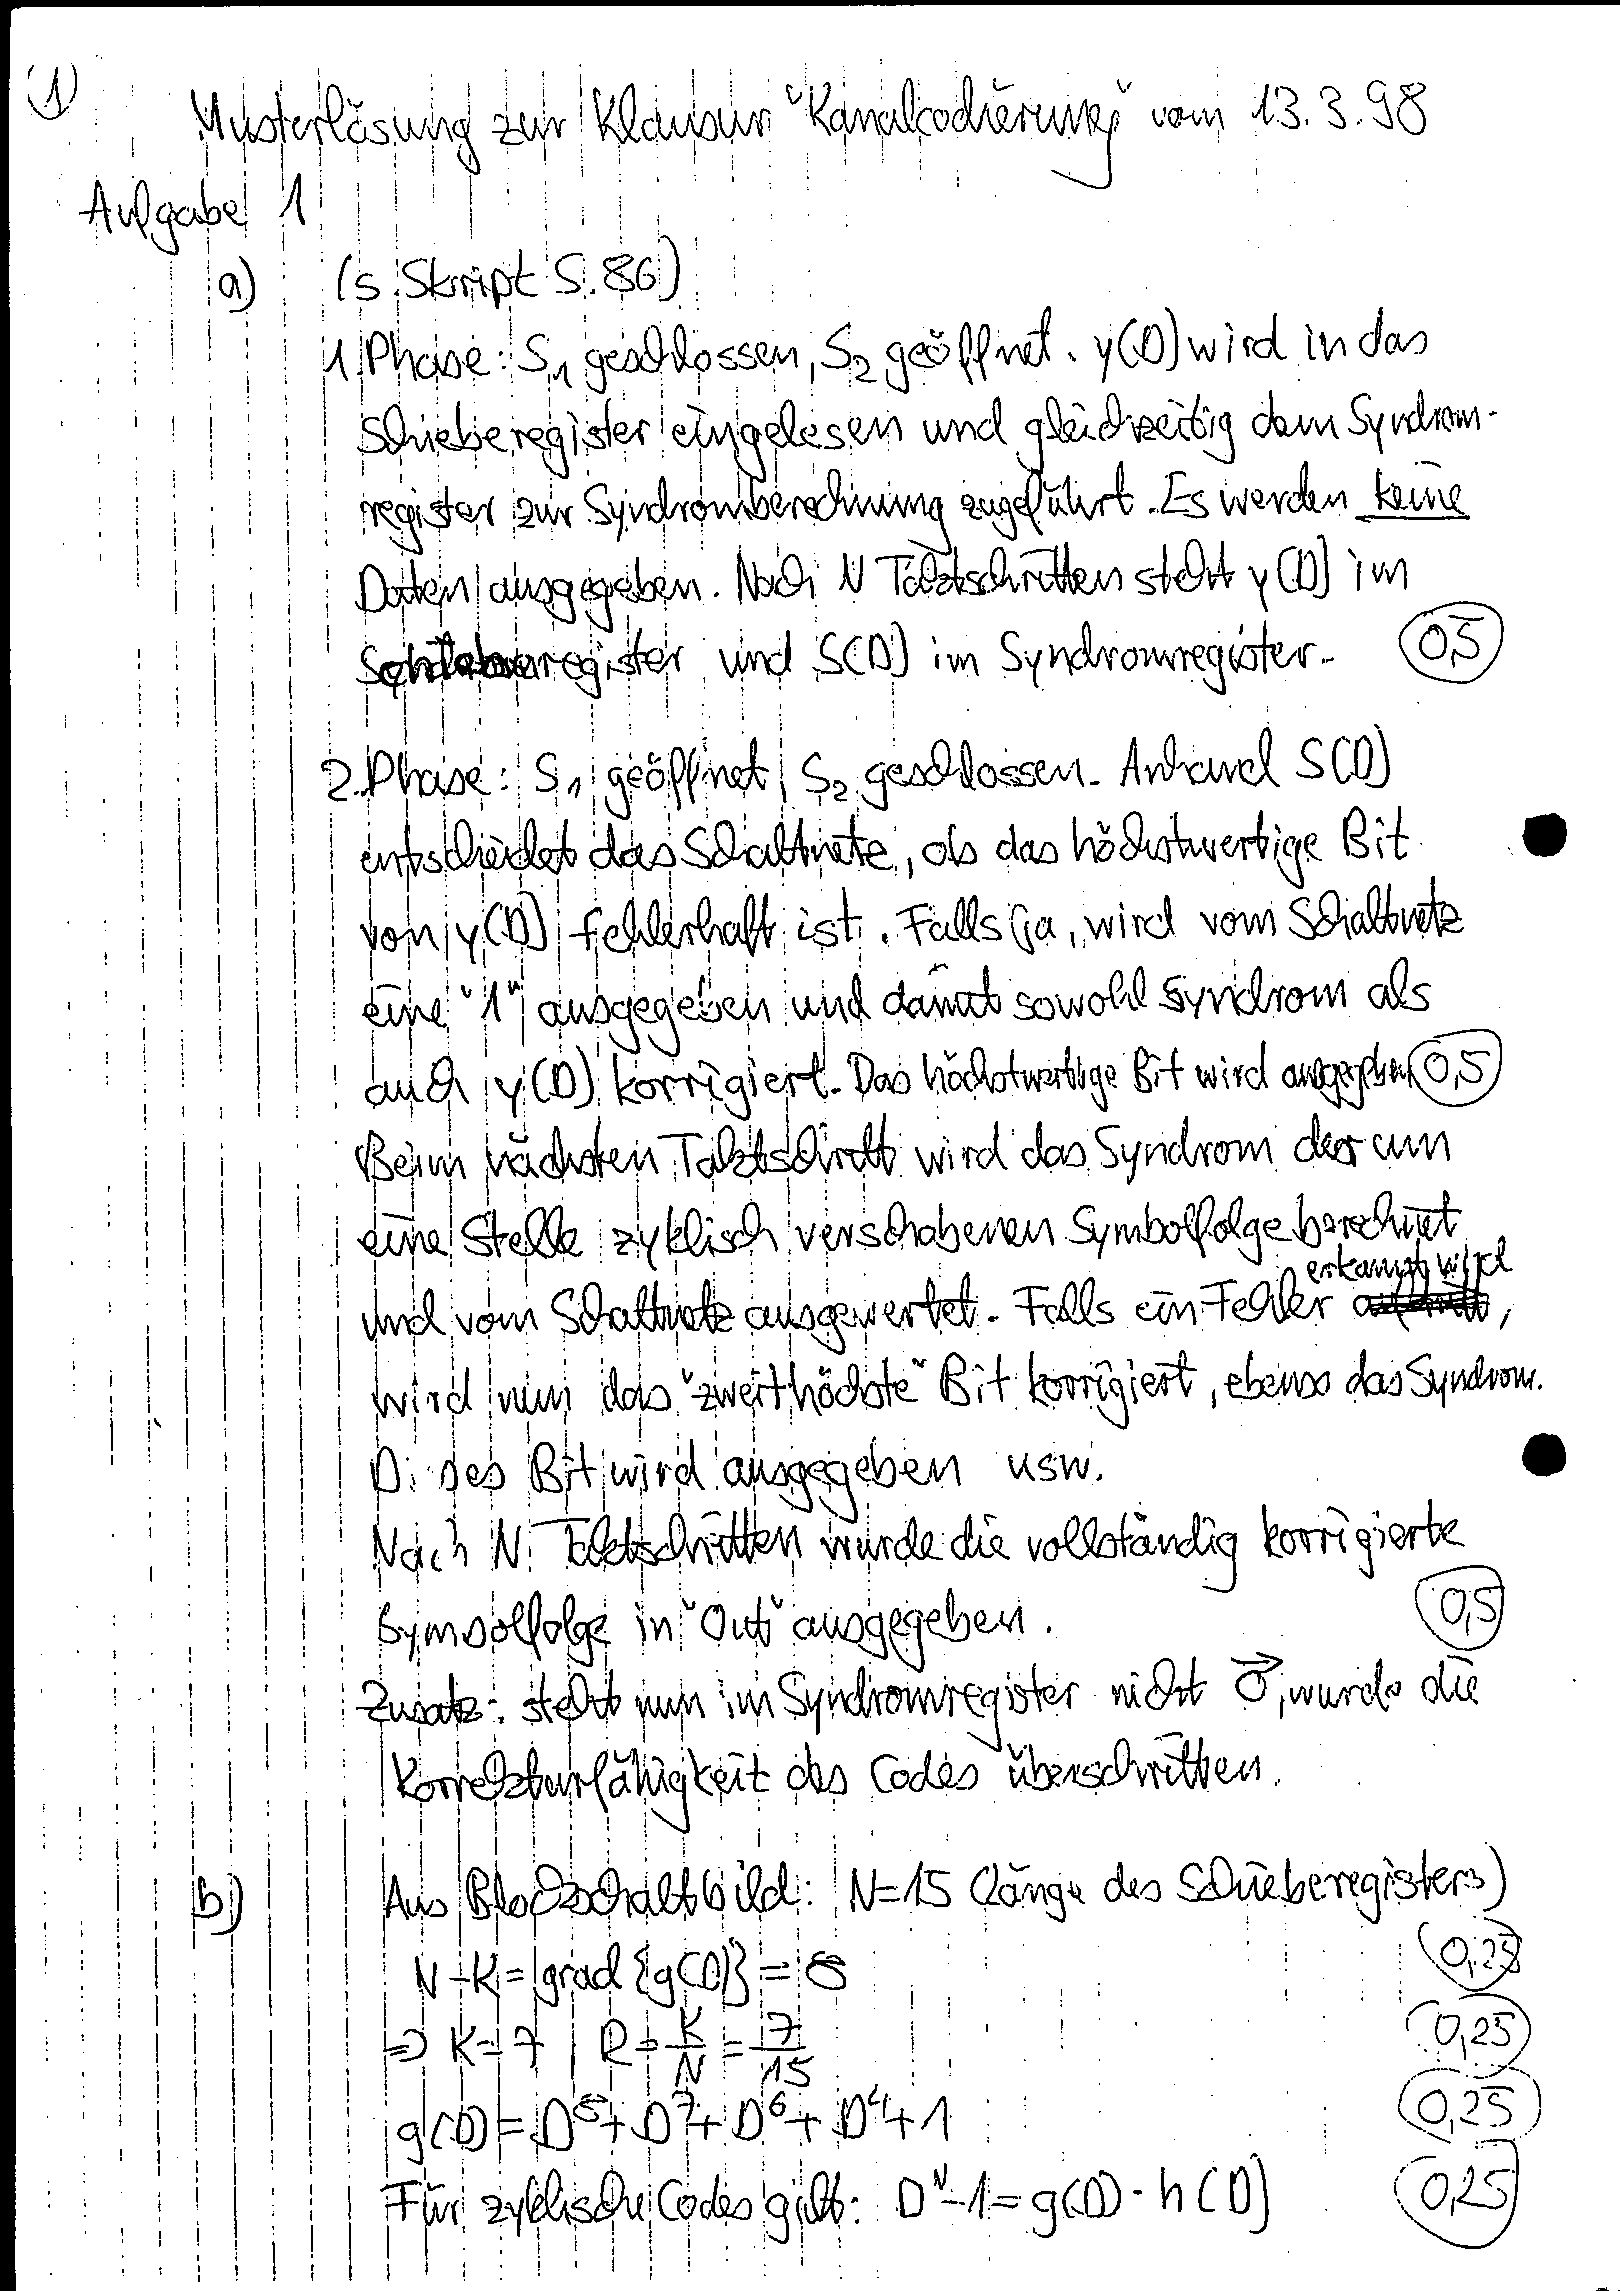 1)
Musterlösung zur Klausur "Kanalcodierung" vom 13.3.98
Aufgabe 1
a) (s. Skript S. 86)
1. Phase: S₁ geschlossen, S₂ geöffnet. y(D) wird in das
Schieberegister eingelesen und gleichzeitig dem Syndrom-
register zur Syndromberechnung zugeführt. Es werden keine
Daten ausgegeben. Nach N Taktschritten steht y(D) im
Schieberegister und S(D) im Syndromregister. 0,5
2. Phase: S₁ geöffnet, S₂ geschlossen. Anhand S(D)
entscheidet das Schaltnetz, ob das höchstwertige Bit
von y(D) fehlerhaft ist. Falls ja, wird vom Schaltnetz
eine "1" ausgegeben und damit sowohl Syndrom als
auch y(D) korrigiert. Das höchstwertige Bit wird ausgegeben 0,5
Beim nächsten Taktschritt wird das Syndrom der um
eine Stelle zyklisch verschobenen Symbolfolge berechnet
und vom Schaltnetz ausgewertet. Falls ein Fehler erkannt wird,
wird nun das "zweithöchste" Bit korrigiert, ebenso das Syndrom.
Dieses Bit wird ausgegeben usw.
Nach N Taktschritten wurde die vollständig korrigierte
Symbolfolge in "Out" ausgegeben. 0,5
Zusatz: steht nun im Syndromregister nicht 0⃗, wurde die
Korrekturfähigkeit des Codes überschritten.
b) Aus Blockschaltbild: N=15 (Länge des Schieberegisters)
N-K = grad{g(D)} = 8 0,25
⇒ K=7 R = K/N = 7/15 0,25
g(D) = D⁸ + D⁷ + D⁶ + D⁴ + 1 0,25
Für zyklische Codes gilt: Dᴺ-1 = g(D) · h(D) 0,25